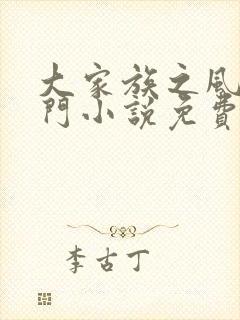 大家族之風
門小說免費
李古丁